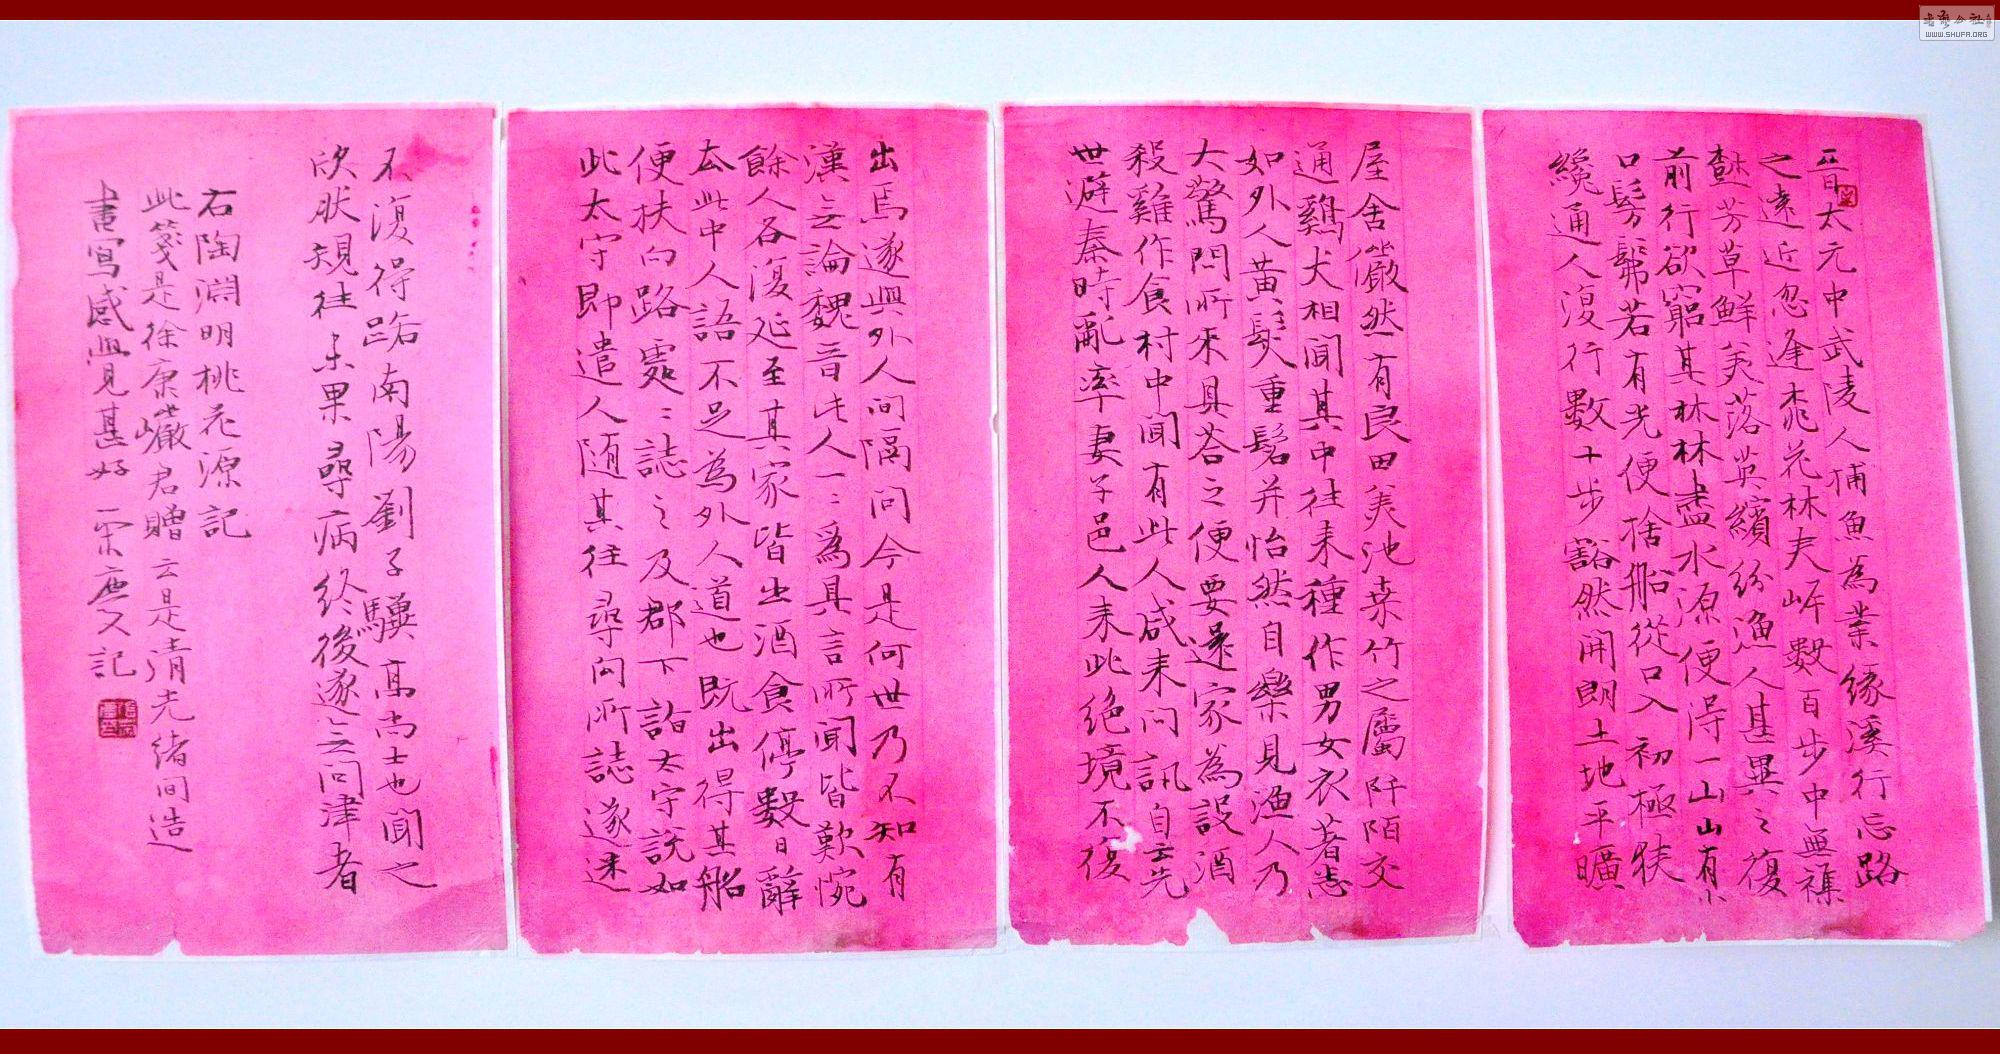 晉太元中武陵人捕魚為業緣溪行忘路
之遠近忽逢桃花林夾岸數百步中無雜
樹芳草鮮美落英繽紛漁人甚異之復
前行欲窮其林林盡水源便得一山山有小
口髣髴若有光便捨船從口入初極狹
纔通人復行數十步豁然開朗土地平曠
屋舍儼然有良田美池桑竹之屬阡陌交
通鷄犬相聞其中往来種作男女衣著悉
如外人黃髮垂髫并怡然自樂見漁人乃
大驚問所來具荅之便要還家為設酒
殺雞作食村中聞有此人咸来問訊自云先
世避秦時亂率妻子邑人来此絕境不復
出焉遂與外人间隔问今是何世乃不知有
漢无論魏晉此人一二為具言所聞皆歎惋
餘人各復延至其家皆出酒食停數日辭
去此中人語不足為外人道也既出得其船
便扶向路處處誌之及郡下詣太守說如
此太守即遣人随其往尋向所誌遂迷
不復得路南陽劉子驥高尚士也聞之
欣然規往未果尋病终後遂无问津者
右陶淵明桃花源記
此箋是徐康巗君贈云是清光緒间造
書寫感覺甚好 記
書法公社
WWW.SHUFA.ORG